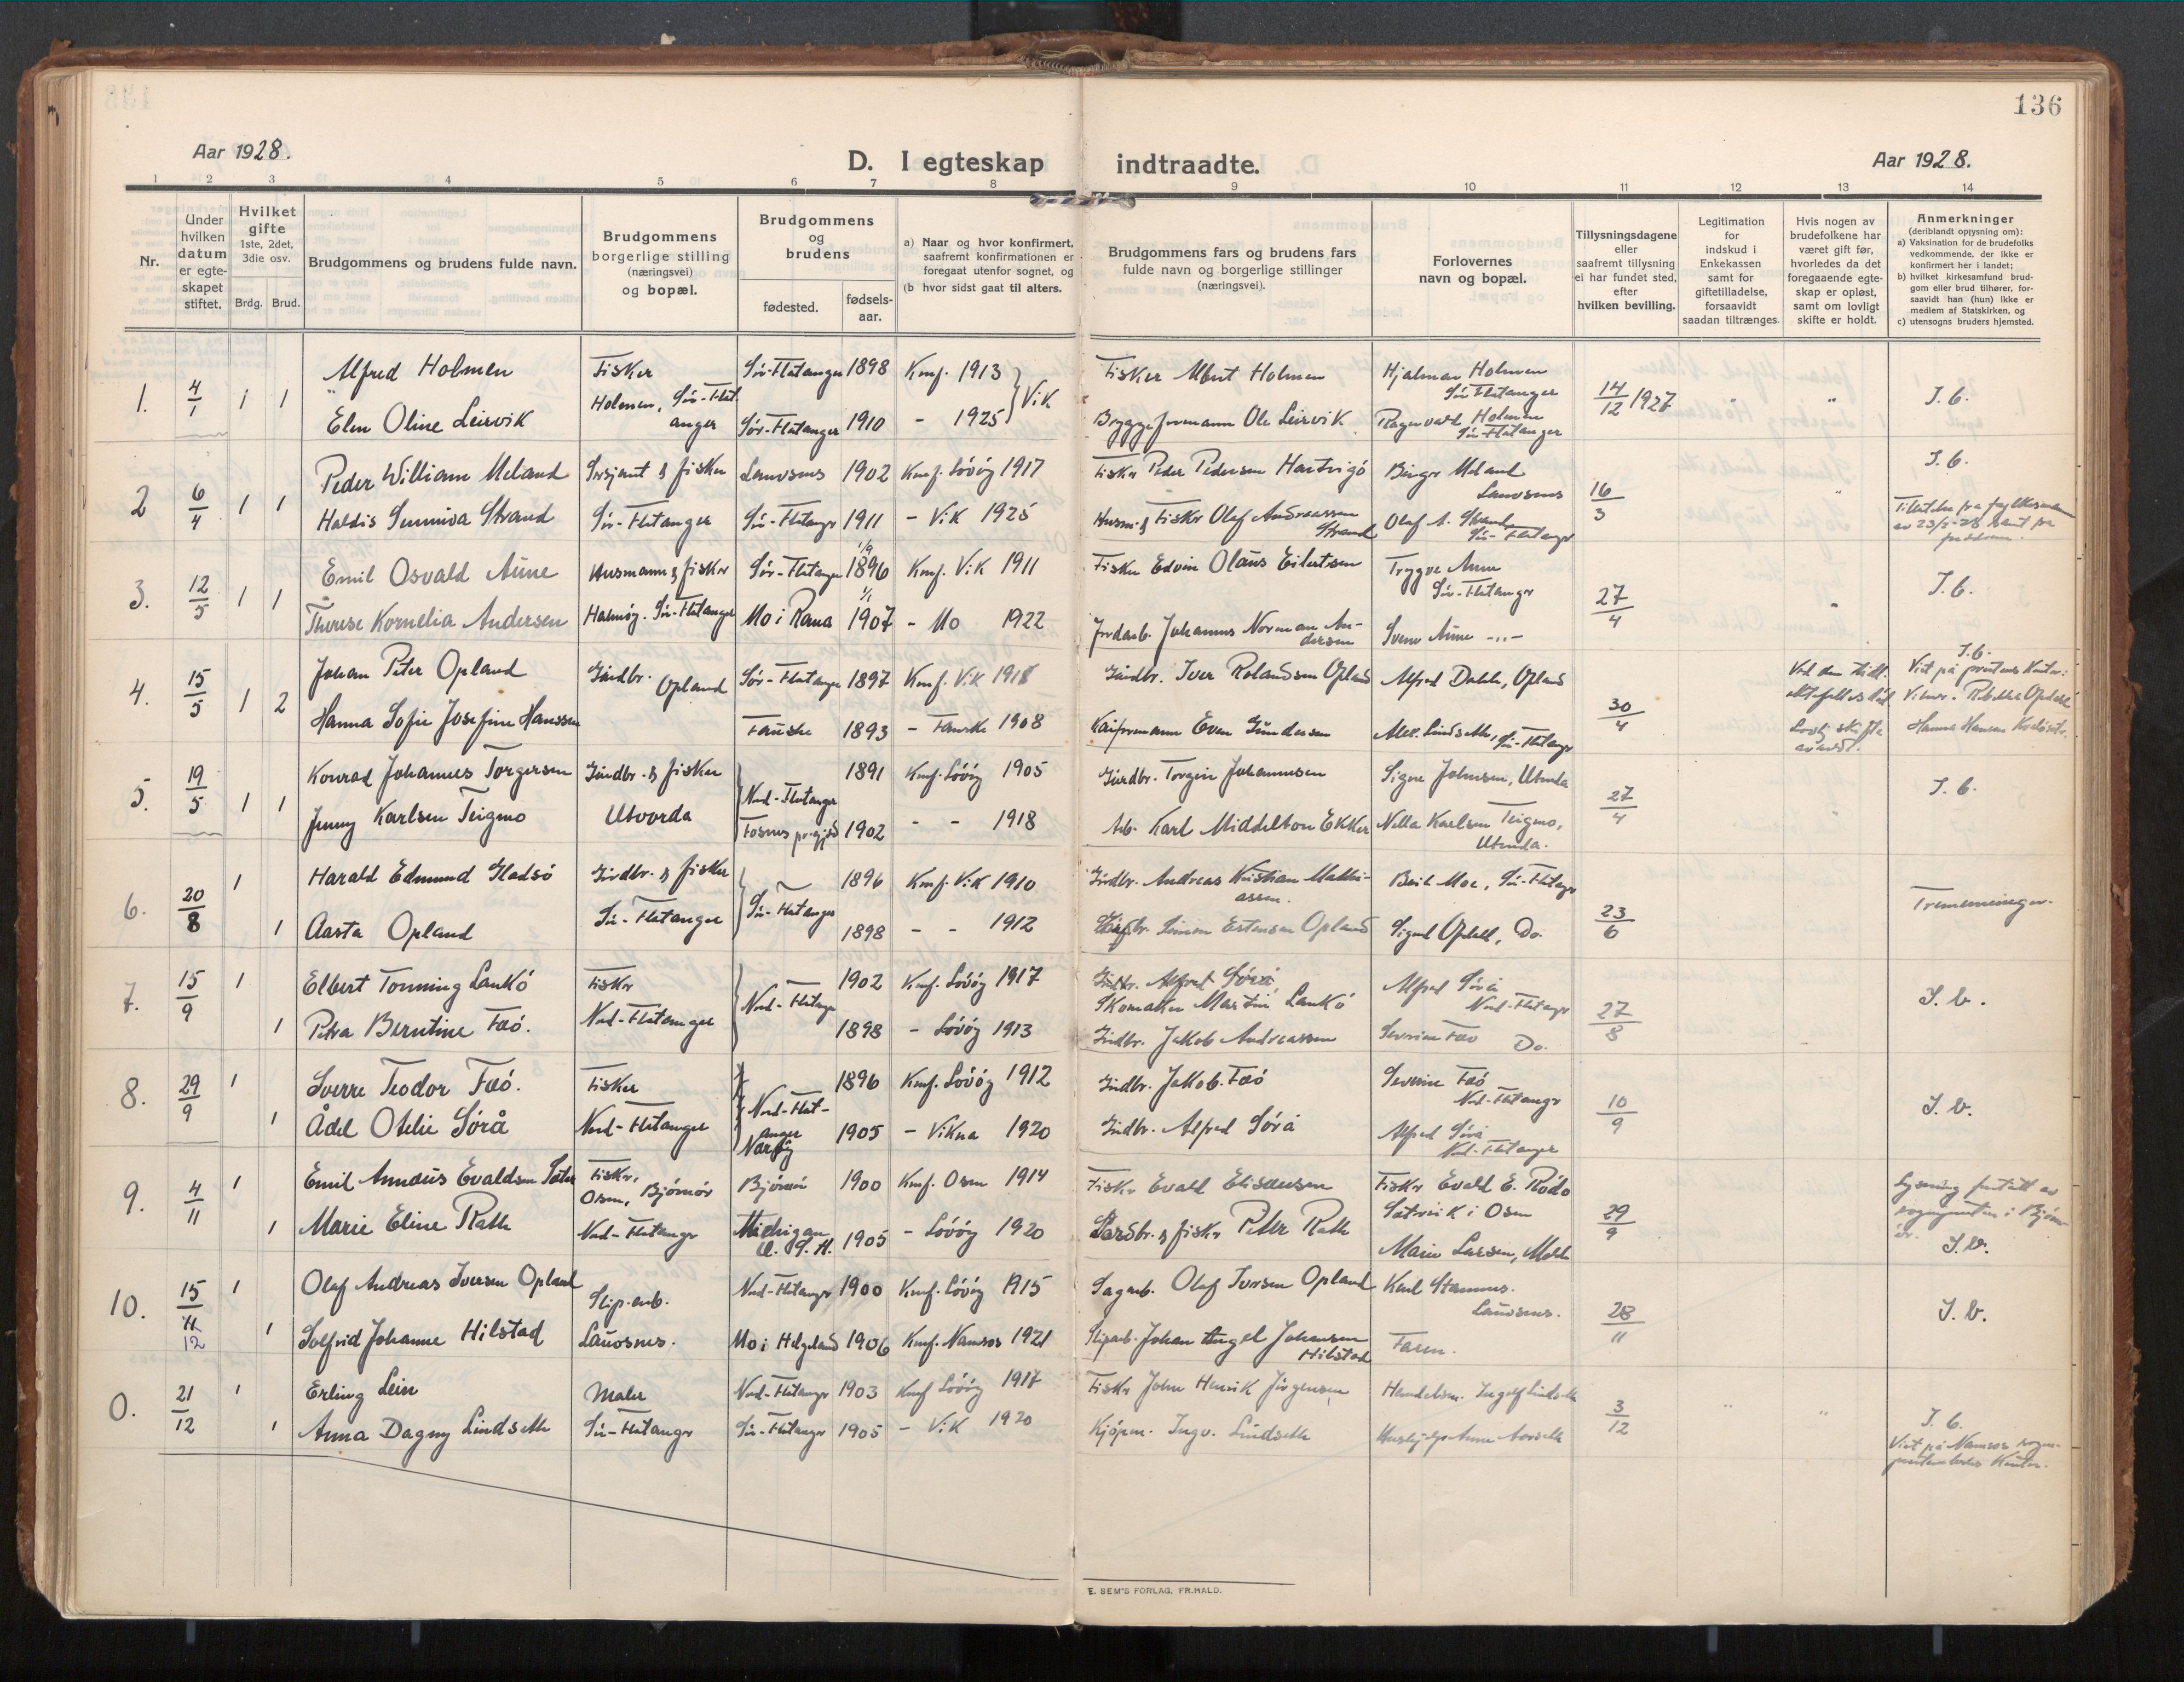 136
Aar 1928.
D. I egteskap indtraadte.
Aar 1928.
1 2 3 4 5 6 7 8 9 10 11 12 13 14
Nr.
Under hvilken datum er egteskapet stiftet.
Hvilket gifte 1ste, 2det, 3die osv.
Brdg. Brud.
Brudgommens og brudens fulde navn.
Brudgommens borgerlige stilling (næringsvei) og bopæl.
Brudgommens og brudens
fødested.
fødselsaar.
a) Naar og hvor konfirmert, saafremt konfirmationen er foregaat utenfor sognet, og
(b hvor sidst gaat til alters.
Brudgommens fars og brudens fars fulde navn og borgerlige stillinger (næringsvei).
Forlovernes navn og bopæl.
Tillysningsdagene eller saafremt tillysning ei har fundet sted, efter hvilken bevilling.
Legitimation for indskud i Enkekassen samt for giftetilladelse, forsaavidt saadan tiltrænges.
Hvis nogen av brudefolkene har været gift før, hvorledes da det foregaaende egteskap er opløst, samt om lovligt skifte er holdt.
Anmerkninger (deriblandt opjysning om):
a) Vaksination for de brudefolks vedkommende, der ikke er konfirmert her i landet;
b) hvilket kirkesamfund brudgom eller brud tilhører, forsaavidt han (hun) ikke er medlem af Statskirken, og
c) utensogns bruders hjemsted.
1. 4/1 1 1 Alfred Holmen Fisker Sør-Flatanger 1898 Konf. 1913 Fisker Albert Holmen Hjalmar Holmen Sør-Flatanger 14/12 1927 " " I. b.
Elen Oline Leirvik Holmen, Sør-Flatanger Sør-Flatanger 1910 - 1925 } Vik Bryggeformann Ole Leirvik Ragnvald Holmen Sør-Flatanger
2 6/4 1 1 Peder William Meland Sersjant & fisker Lauvsnes 1902 Konf. Løvøy 1917 Fisker Peder Pedersen Hartvigø Birger Meland Lauvsnes 16/3 " I. b.
Haldis Sunniva Strand Sør-Flatanger Sør-Flatanger 1911 - Vik 1925 Husm. & Fisker Olaf Andreassen Strand Olaf A. Strand, Sør-Flatanger
3. 12/5 1 1 Emil Osvald Aune Husmann & fisker Sør-Flatanger 1/9 1896 Konf. Vik 1911 Fisker Edvin Olaus Eilertsen Trygve Aune Sør-Flatanger 27/4 " I. b.
Therese Kornelia Andersen Halmøy. Sør-Flatanger Mo i Rana 1/1 1907 - Mo 1922 Jordarb. Johannes Norman Andersen Svenn Aune -"-
4. 15/5 1 2 Johan Peter Opland Gårdbr. Opland Sør-Flatanger 1897 Konf. Vik 1911 Gårdbr. Iver Rolandsen Opland Alfred Dahle, Opland 30/4 I. b.
Hanna Sofie Josefine Hanssen Fauske 1893 - Fauske 1908 Kaiformann Even Gundersen Alex. Lindseth, Sør-Flatanger
5. 19/5 1 1 Konrad Johannes Torgersen Gårdbr. & fisker 1891 Konf. Løvøy 1905 Gårdbr. Torgeir Johannesen Signe Johnsen, Utvorda 27/4 I. b.
Jenny Karlsen Teigmo Utvorda } Nord-Flatanger Fosnes pr.gjeld 1902 - - 1918 Arb. Karl Middelton Ekker Nella Karlsen Teigmo, Utvorda.
6. 20/8 1 Harald Edmund Gladsø Gårdbr. & fisker 1896 Konf. Vik 1910 Gårdbr. Andreas Kristian Mathiassen. Berit Moe, Sør-Flatanger 23/6
1 Aasta Opland Sør-Flatanger } Sør-Flatanger 1898 - - 1912 Gårdbr. Simon Estensen Opland Sigurd Opdahl, Do.
7. 15/9 1 Elbert Tonning Laukø Fisker } Nord-Flatanger 1902 Konf. Løvøy 1917 Skomaker Martin Laukø Alfred Sørå Nord-Flatanger 27/8 I. b.
1 Petra Berntine Faø. Nord-Flatanger 1898 - Løvøy 1913 Gårdbr. Jakob Andreassen Severine Faø Do.
8. 29/9 1 Sverre Teodor Faø. Fisker 1896 Konf. Løvøy 1912 Gårdbr. Jakob Faø Severine Faø Nord-Flatanger 10/9 I. b.
1 Ådel Otelie Sørå Nord-Flatanger } Nord-Flatanger 1905 - Vikna 1920 Gårdbr. Alfred Sørå Alfred Sørå Nord-Flatanger
9. 4/11 1 Emil Annæus Evaldsen Sæter Fisker, Osen, Bjørnør Bjørnør 1900 Konf. Osen 1914 Fisker Evald Elisæusen Fisker Evald E. Rødø Sætervik i Osen 29/9 I. b.
1 Marie Eline Rath Nord-Flatanger Michigan U. S. A. 1905 - Løvøy 1920 Gårdbr. & fisker Peter Rath Marie Larsen,
10. 15/12 1 Olaf Andreas Iversen Opland Slip.arb. Nord-Flatanger 1900 Konf. Løvøy 1915 Sagarb. Olaf Iversen Opland Karl Stamnes. Lauvsnes. 28/11 I. b.
1 Solfrid Johanne Hilstad Lauvsnes. Mo i Helgeland 1906 Konf. Namsos 1921 Sliparb. Johan Angel Johansen Hilstad Faren.
0. 21/12 1 Erling Lein Maler Nord-Flatanger 1903 Konf Løvøy 1917 Fisker John Henrik Jørgensen Handelsm. Ingolf Lindseth 3/12 " " I. b.
1 Anna Dagny Lindseth Sør-Flatanger Sør-Flatanger 1905 - Vik 1920 Kjøpm. Ingv. Lindseth Viet på Namsos
E. SEM'S FORLAG, FR.HALD.